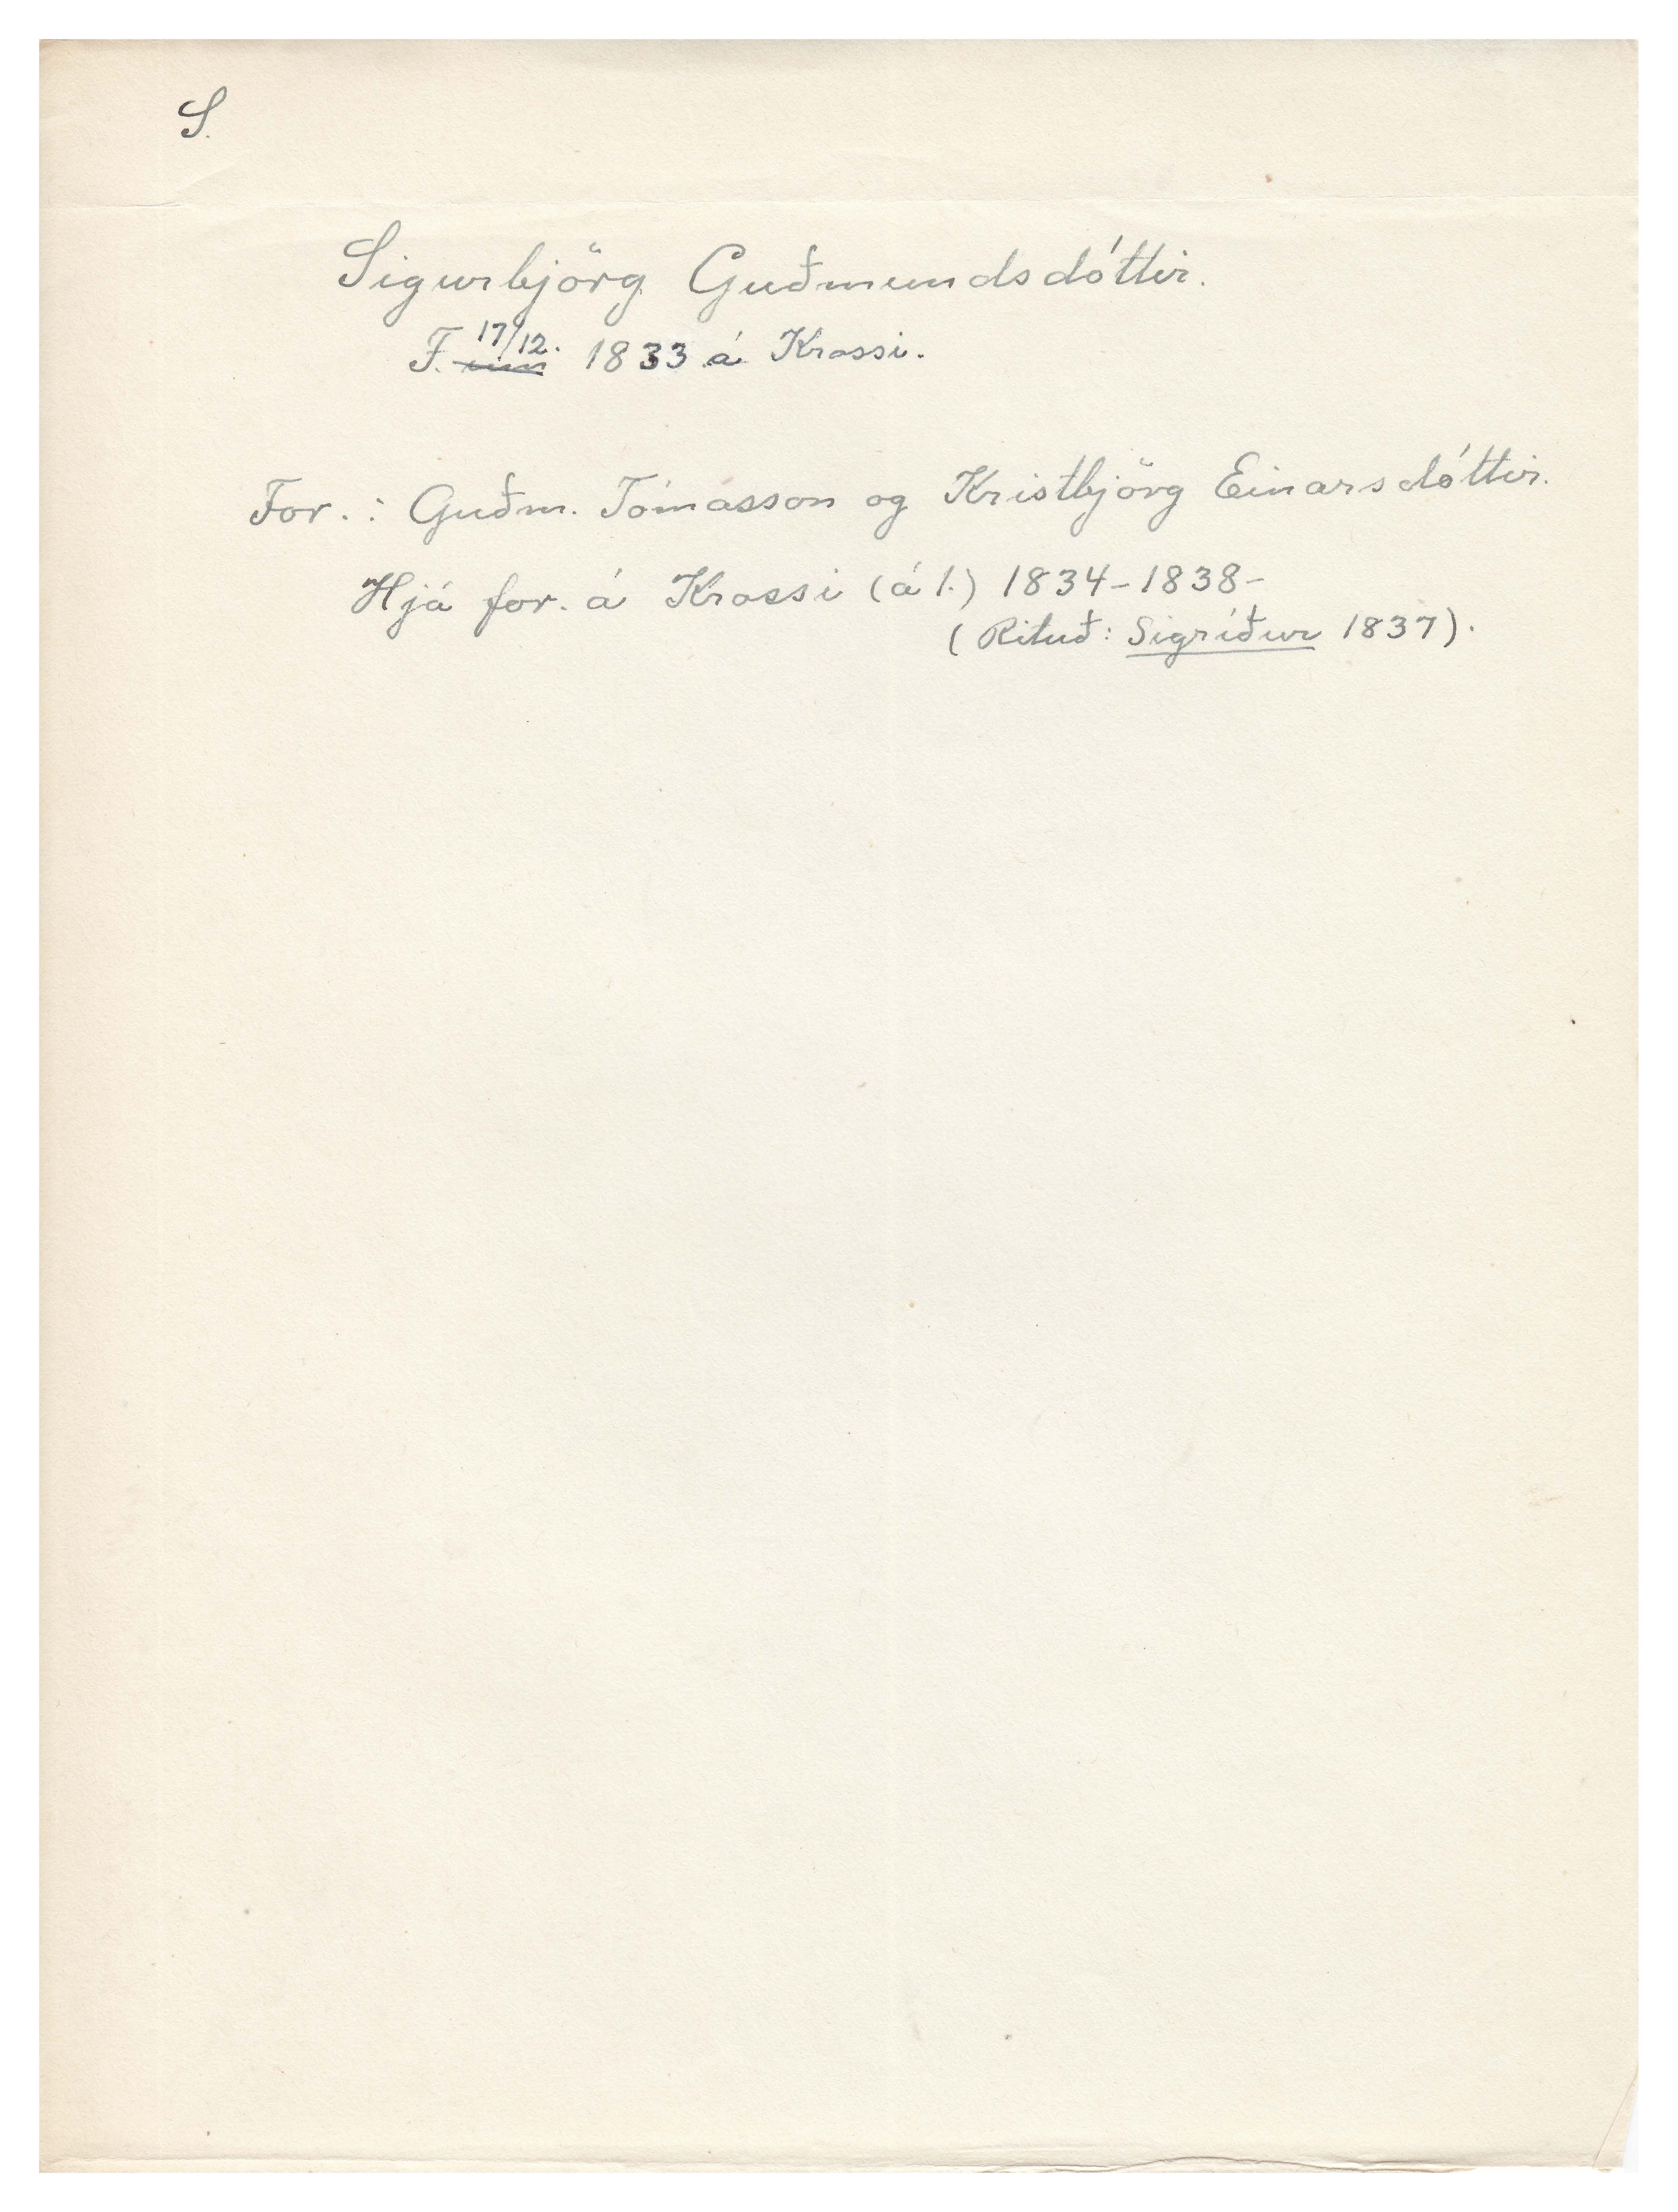 S.
Sigurbjörg Guðmundsdóttir.
F. 17/12. 1833 á Krossi.
For.: Guðm. Tómasson og Kristbjörg Einarsdóttir.
Hjá for. á Krossi (á l.) 1834-1838-
(Rituð: Sigríður 1837).